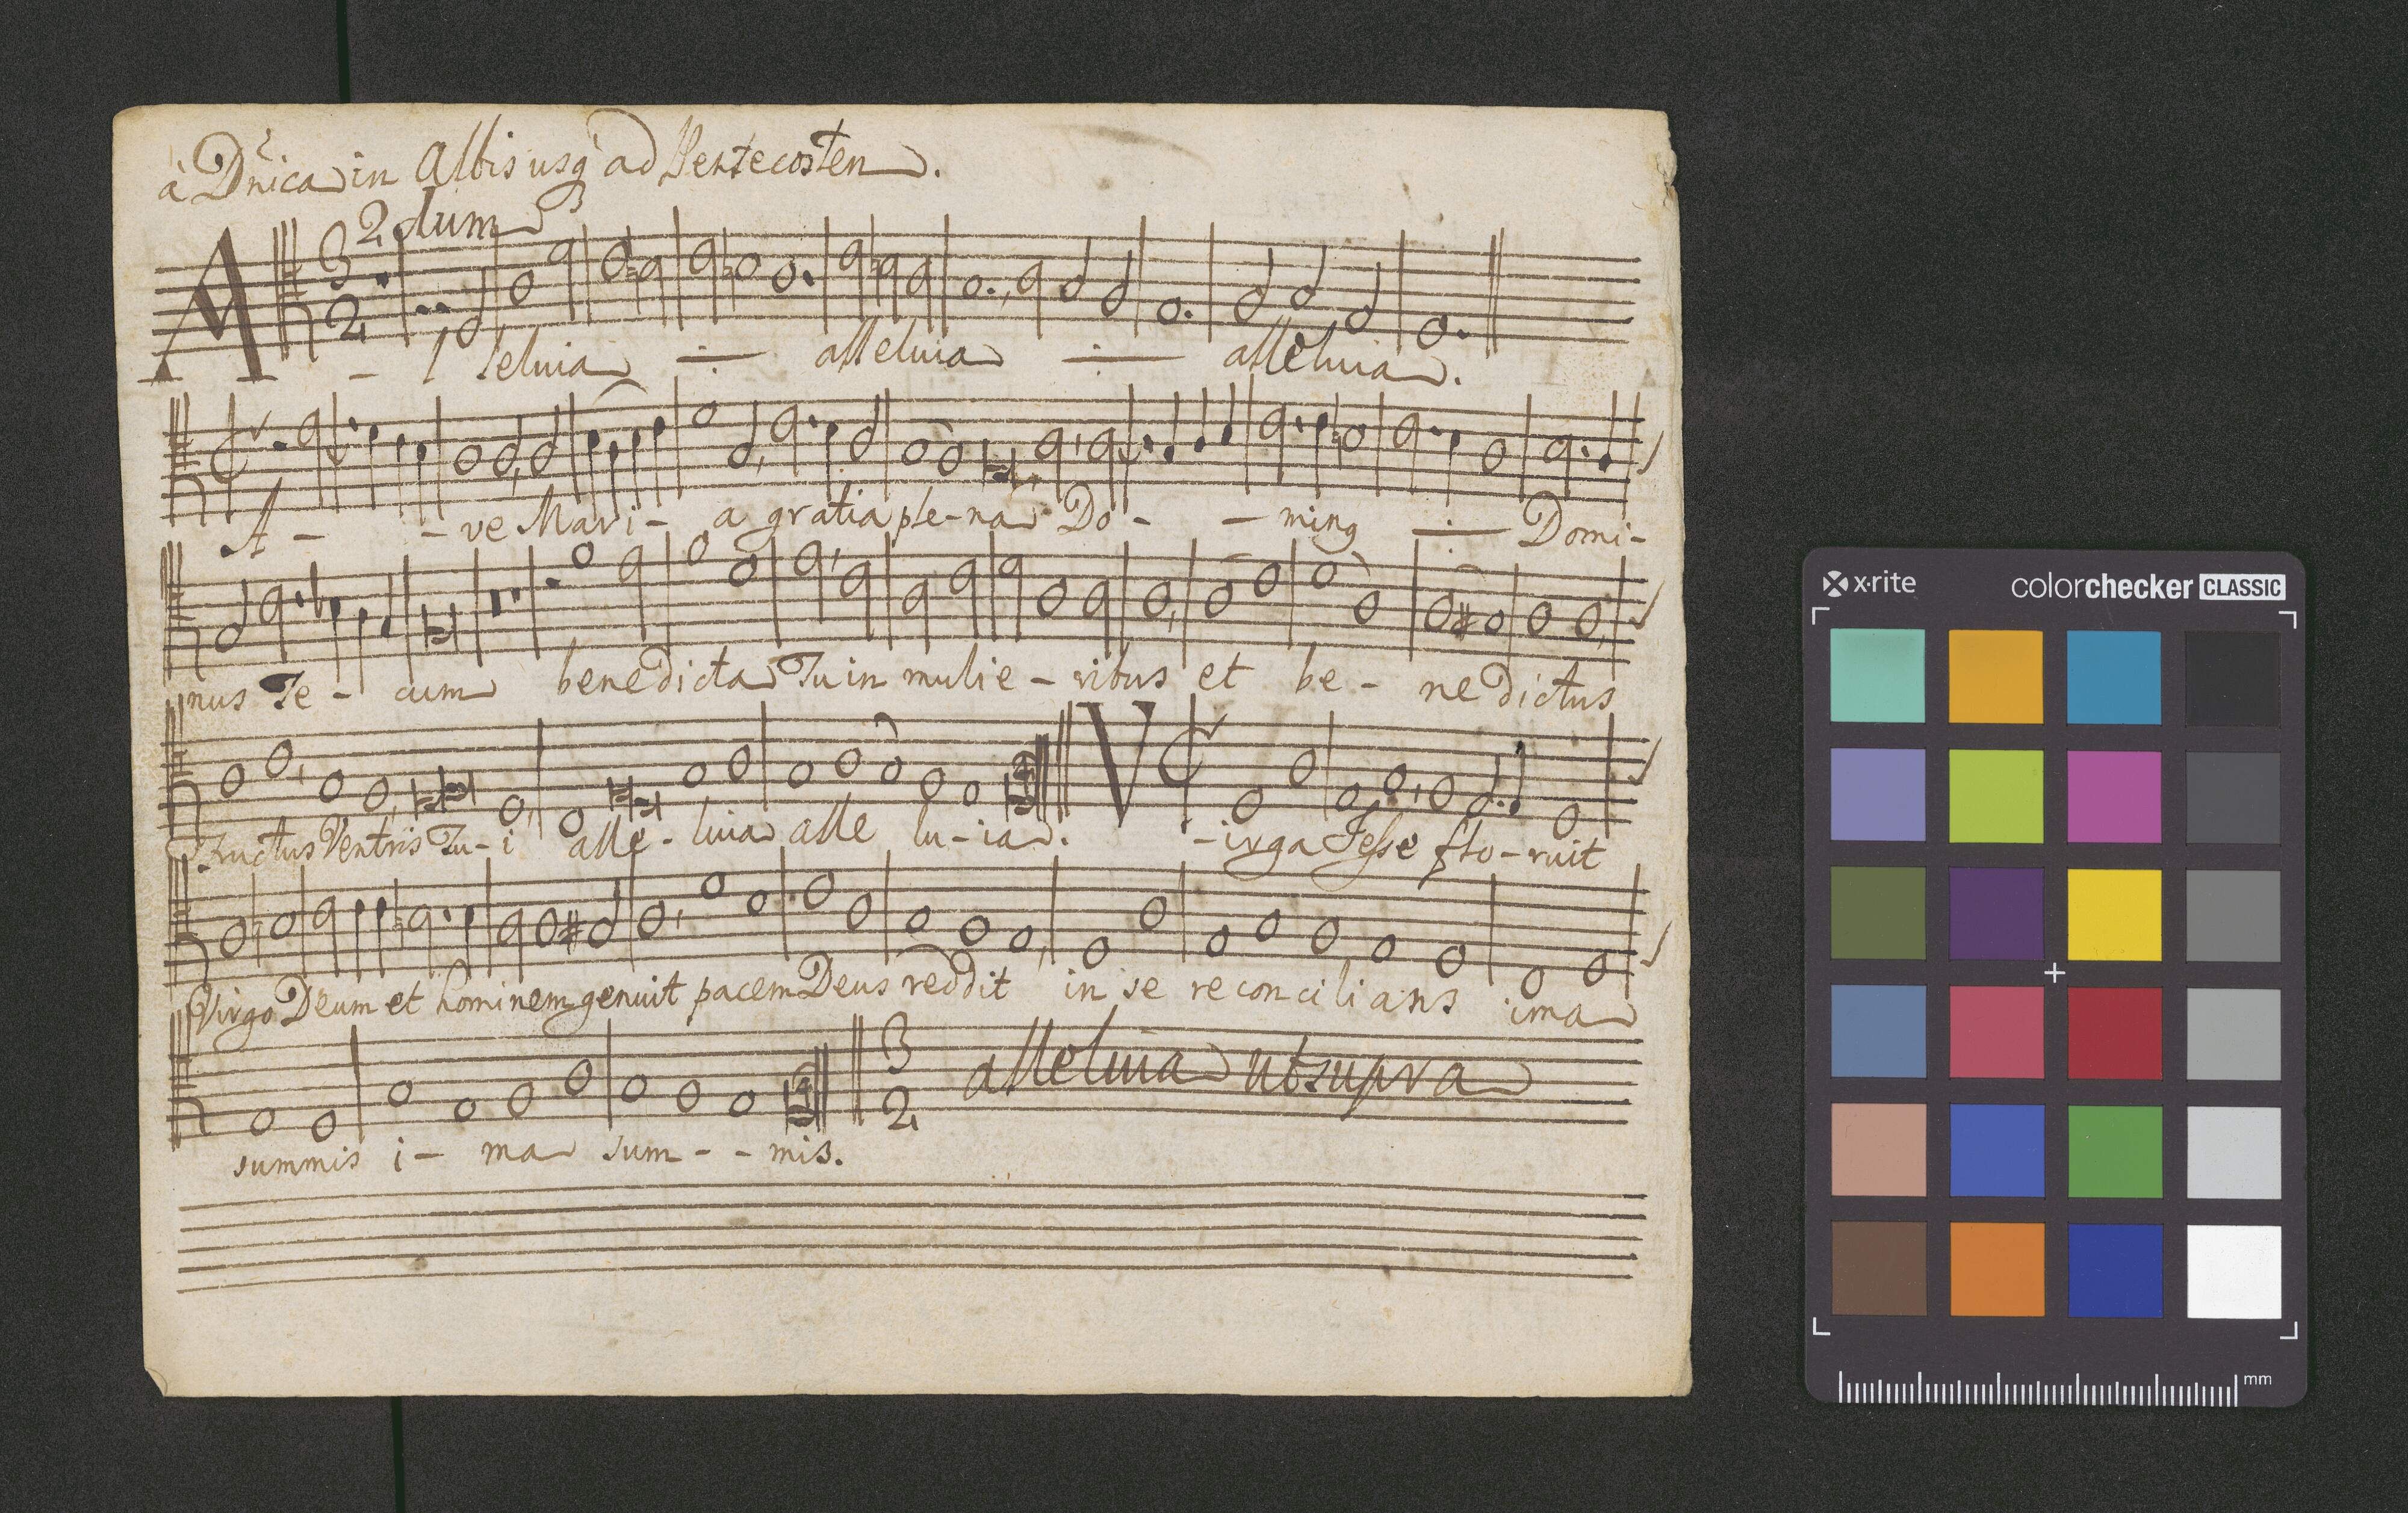 à Dnica in Albis usq ad Pentecosten.
2dum
3
2
A - l leluia ÷ alleluia ÷ alleluia.
A - - ve Mari - a gratia ple-na Do - - ming ÷ Domi-
nus Te - cum benedicta Tu in mulie - ribus et be - ne dictus
fructus Ventris Tu - i alle - luia alle lu - ia. V - irga Jesse flo - ruit
Virgo Deum et hominem genuit pacem Deus reddit in se reconcilians ima
3
2
alleluia ut supra
summis i - ma sum - - mis.
x-rite
colorchecker CLASSIC
mm